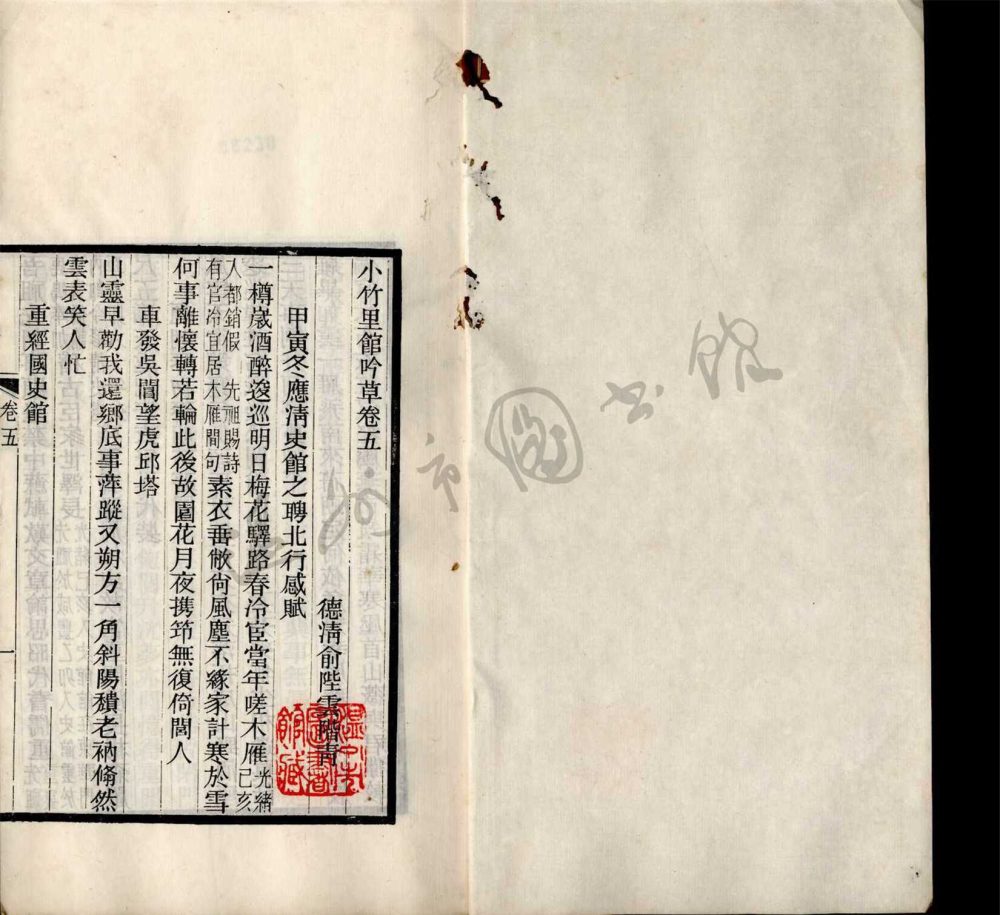 小竹里館吟草卷五
德淸俞陛雲階青
甲寅冬應淸史館之聘北行感賦
一樽歲酒醉逡巡明日梅花驛路春冷宦當年嗟木雁光緖己亥
入都銷假先祖賜詩有官冷宜居木雁間句素衣垂敝尙風塵不緣家計寒於雪
何事離懷轉若輪此後故園花月夜携笻無復倚閭人
車發吳閶望虎邱塔
山靈早勸我還鄉底事萍蹤又朔方一角斜陽穨老衲翛然
雲表笑人忙
重經國史館
卷五
一
溫州市圖書館藏
市圖书館